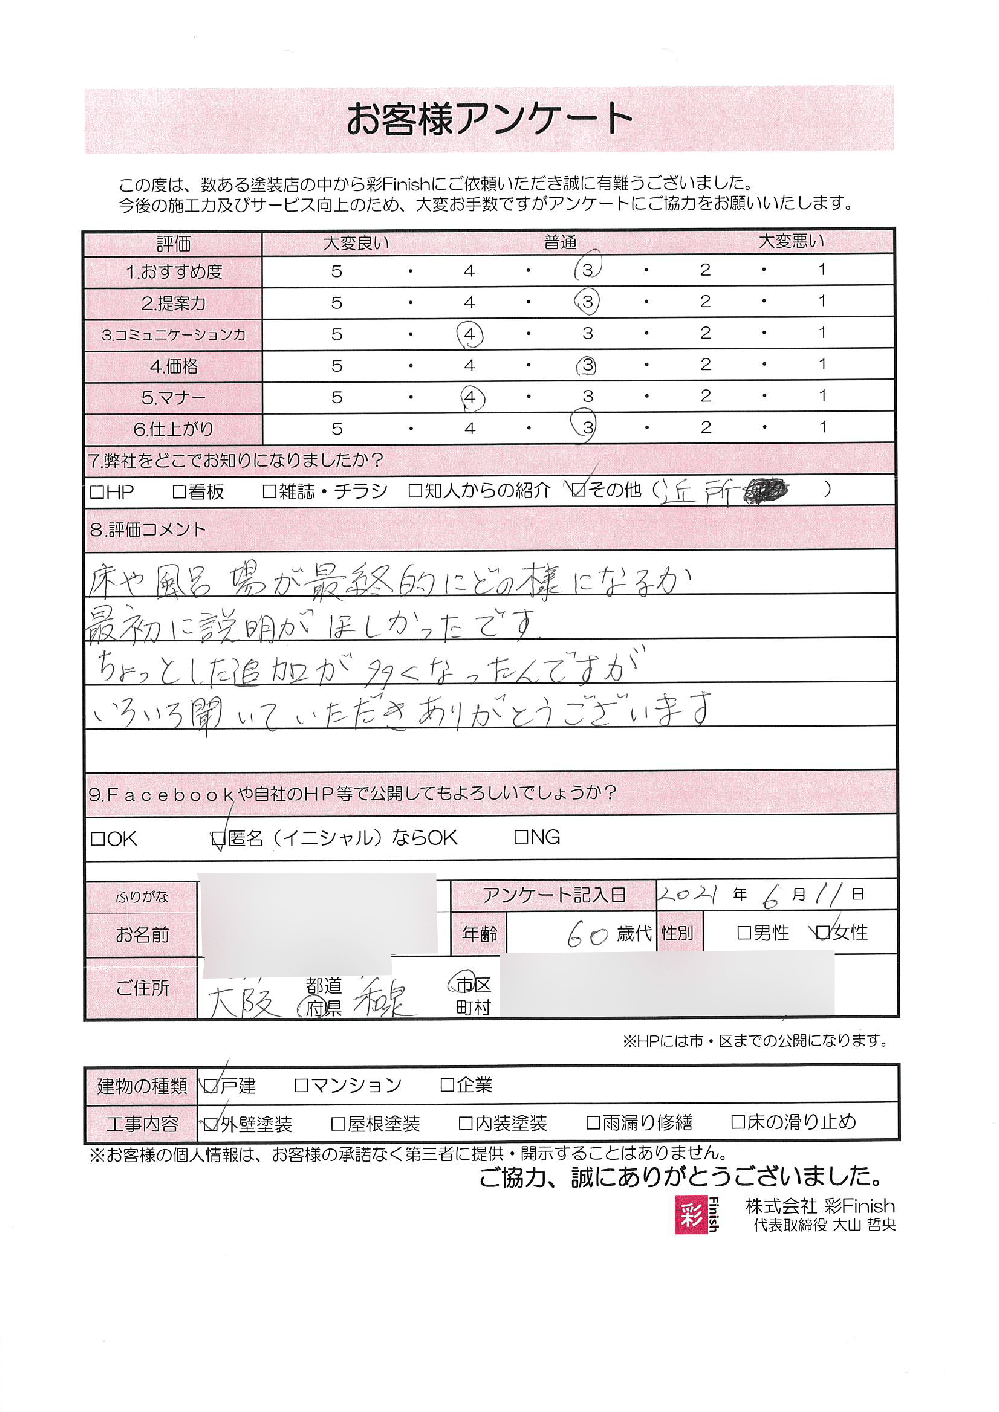 お客様アンケート
この度は、数ある塗装店の中から彩Finishにご依頼いただき誠に有難うございました。
今後の施工力及びサービス向上のため、大変お手数ですがアンケートにご協力をお願いいたします。
評価 大変良い 普通 大変悪い
1.おすすめ度 5 ・ 4 ・ 3 ・ 2 ・ 1
2.提案力 5 ・ 4 ・ 3 ・ 2 ・ 1
3.コミュニケーション力 5 ・ 4 ・ 3 ・ 2 ・ 1
4.価格 5 ・ 4 ・ 3 ・ 2 ・ 1
5.マナー 5 ・ 4 ・ 3 ・ 2 ・ 1
6.仕上がり 5 ・ 4 ・ 3 ・ 2 ・ 1
7.弊社をどこでお知りになりましたか？
□HP □看板 □雑誌・チラシ □知人からの紹介 ☑その他（近所 ）
8.評価コメント
床や風呂場が最終的にどの様になるか
最初に説明がほしかったです.
ちょっとした追加が多くなったんですが
いろいろ聞いていただきありがとうございます
9.Facebookや自社のHP等で公開してもよろしいでしょうか？
□OK ☑匿名（イニシャル）ならOK □NG
ふりがな アンケート記入日 2021 年 6 月 11 日
お名前 年齢 60 歳代 性別 □男性 ☑女性
ご住所 大阪 都道府県 和泉 市区町村
※HPには市・区までの公開になります。
建物の種類 ☑戸建 □マンション □企業
工事内容 ☑外壁塗装 □屋根塗装 □内装塗装 □雨漏り修繕 □床の滑り止め
※お客様の個人情報は、お客様の承諾なく第三者に提供・開示することはありません。
ご協力、誠にありがとうございました。
彩 Finish 株式会社 彩Finish
代表取締役 大山 哲央